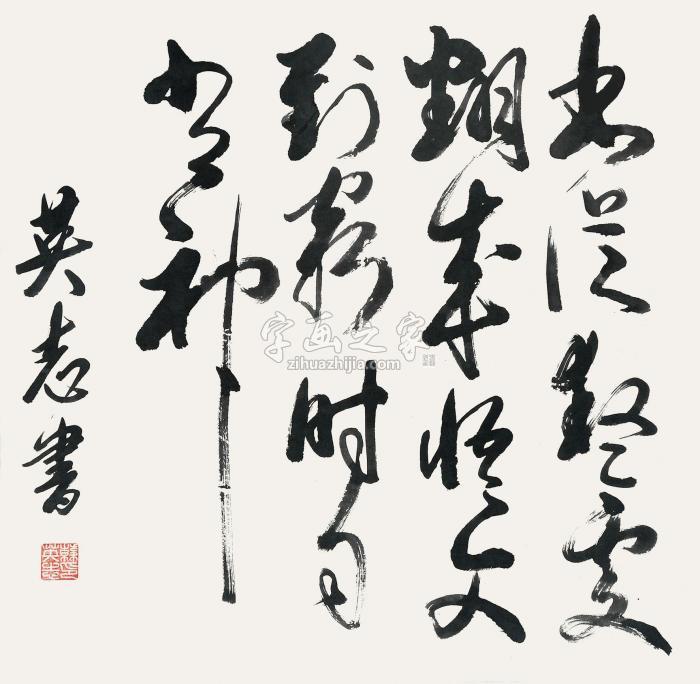 书从疑处
翻成悟文
到窮时自
有神
英志書
字画之家
zihuazhijia.com